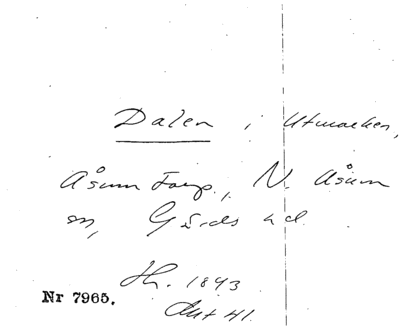 Dalen i Utmarken,
Åsum Torp., N. Åsum
sn, Gärds hd.
Sk. 1843
Akt 41.
Nr 7965.